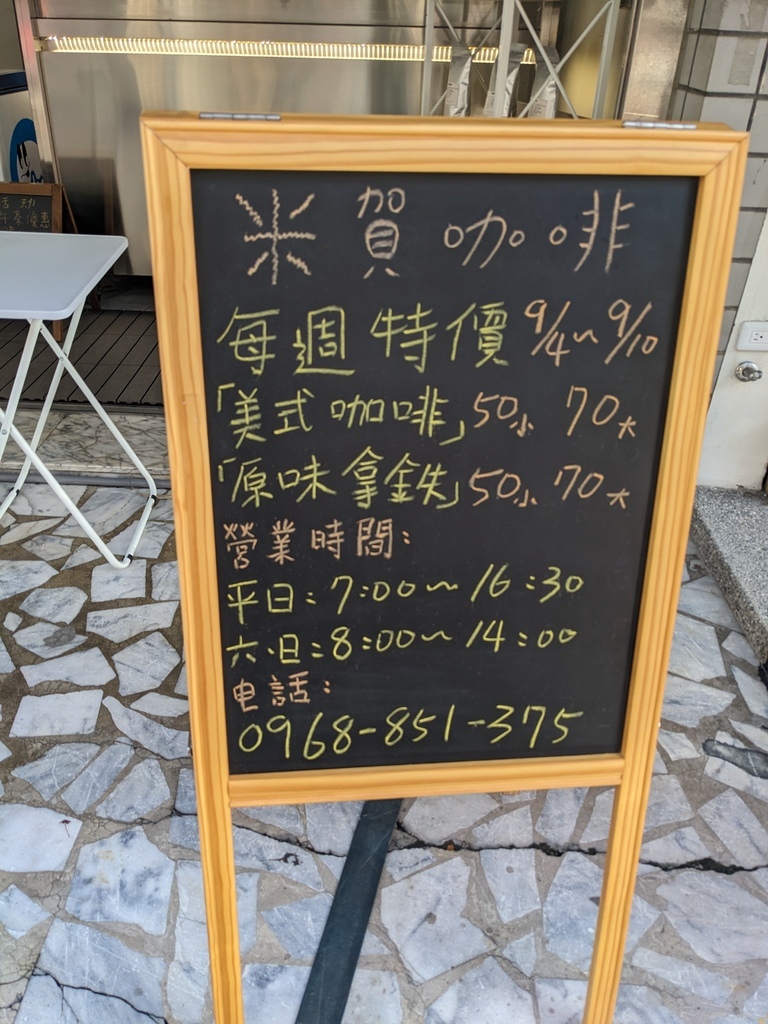 米賀咖啡
每週特價 9/4~9/10
「美式咖啡」50小 70大
「原味拿鉄」50小 70大
營業時間:
平日:7:00~16:30
六.日:8:00~14:00
电話:
0968-851-375